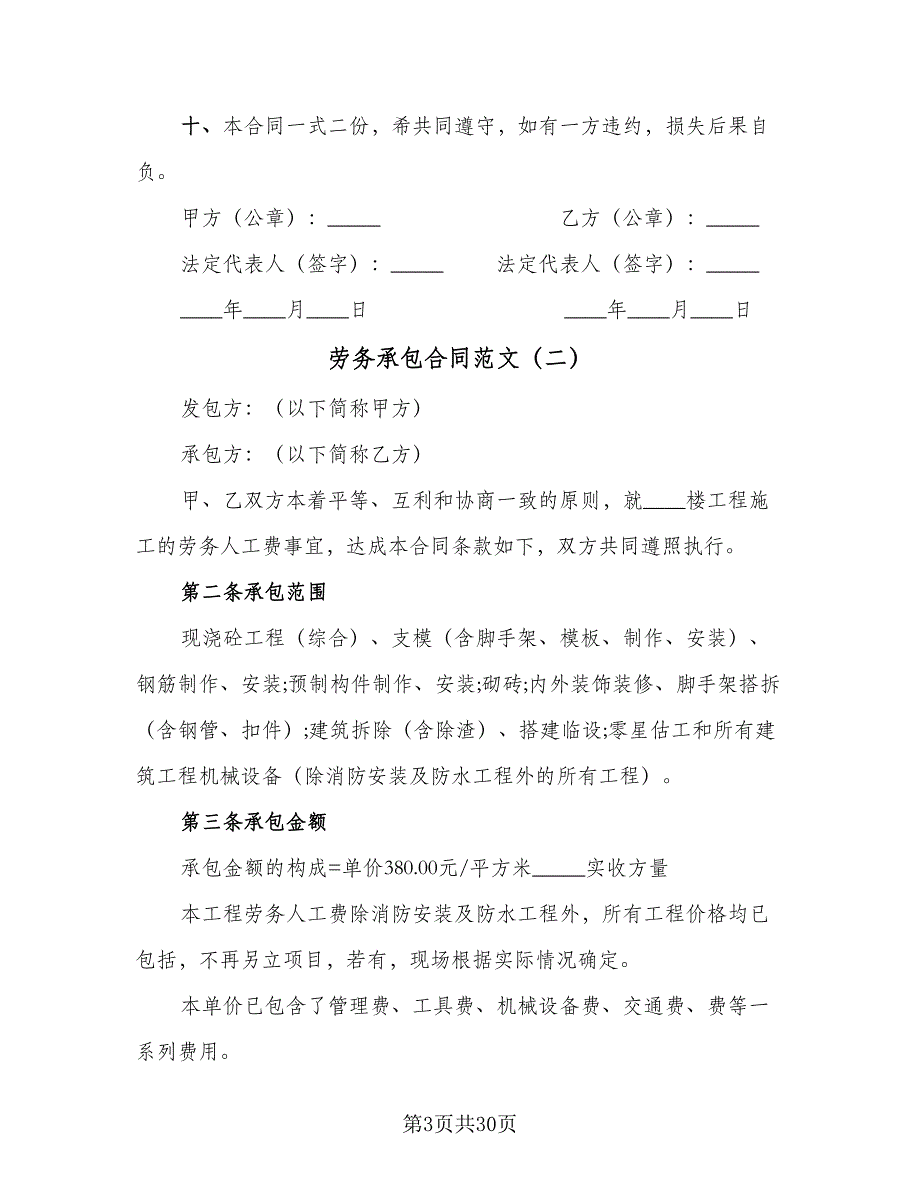 十、本合同一式二份，希共同遵守，如有一方违约，损失后果自
负。
甲方（公章）：_____ 乙方（公章）：_____
法定代表人（签字）：_____ 法定代表人（签字）：_____
____年____月____日 ____年____月____日
劳务承包合同范文（二）
发包方：（以下简称甲方）
承包方：（以下简称乙方）
甲、乙双方本着平等、互利和协商一致的原则，就____楼工程施
工的劳务人工费事宜，达成本合同条款如下，双方共同遵照执行。
第二条承包范围
现浇砼工程（综合）、支模（含脚手架、模板、制作、安装）、
钢筋制作、安装;预制构件制作、安装;砌砖;内外装饰装修、脚手架搭拆
（含钢管、扣件）;建筑拆除（含除渣）、搭建临设;零星估工和所有建
筑工程机械设备（除消防安装及防水工程外的所有工程）。
第三条承包金额
承包金额的构成=单价380.00元/平方米_____实收方量
本工程劳务人工费除消防安装及防水工程外，所有工程价格均已
包括，不再另立项目，若有，现场根据实际情况确定。
本单价已包含了管理费、工具费、机械设备费、交通费、费等一
系列费用。
第3页共30页